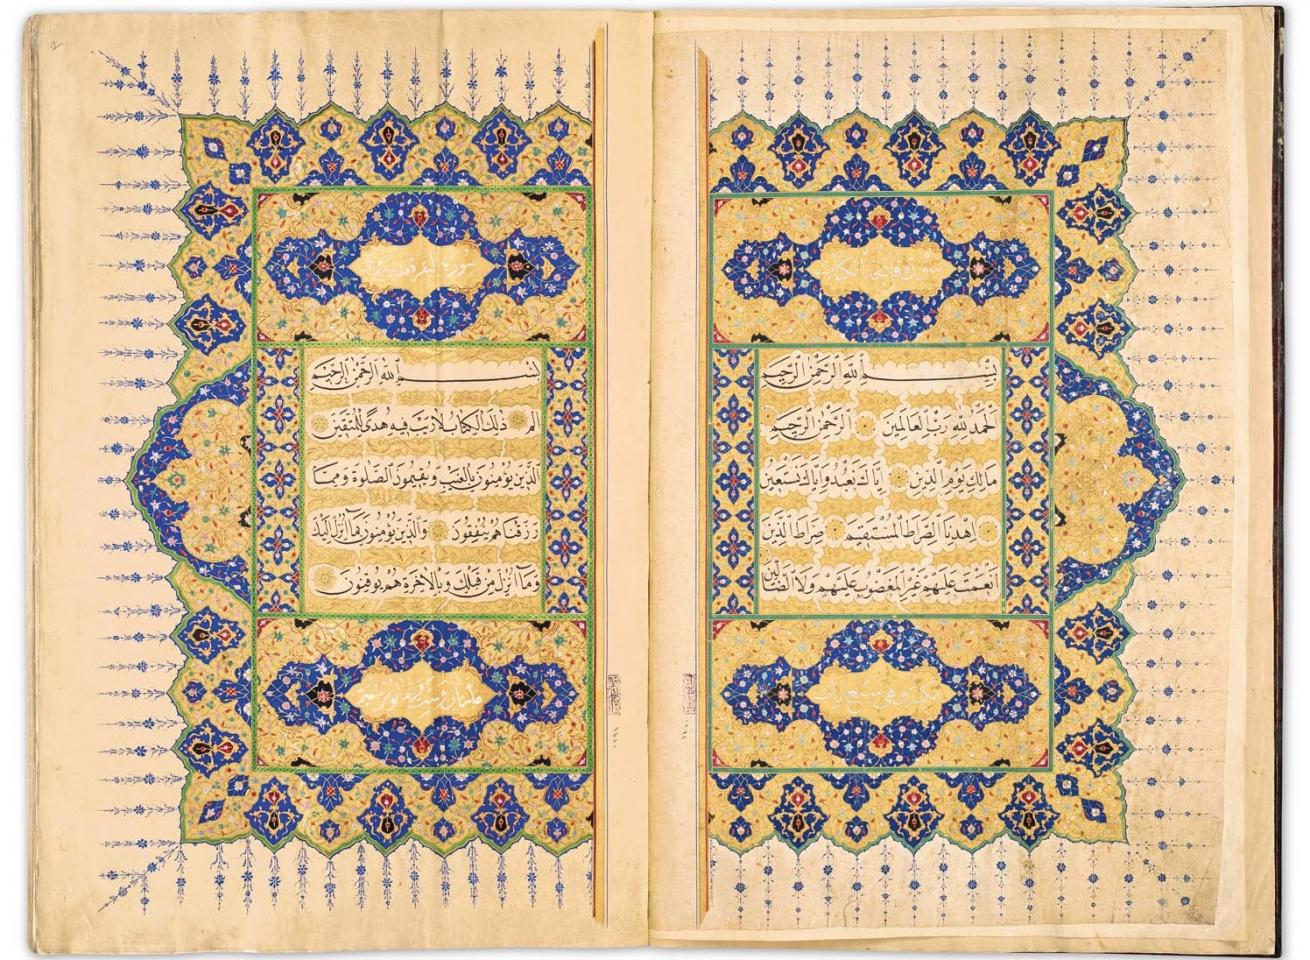 سورة فاتحة الكتاب
بِسْمِ اللهِ الرَّحْمٰنِ الرَّحِيمِ
اَلْحَمْدُ لِلّٰهِ رَبِّ الْعَالَمِينَ الرَّحْمٰنِ الرَّحِيمِ
مَالِكِ يَوْمِ الدِّينِ اِيَّاكَ نَعْبُدُ وَاِيَّاكَ نَسْتَعِينُ
اِهْدِنَا الصِّرَاطَ الْمُسْتَقِيمَ صِرَاطَ الَّذِينَ
اَنْعَمْتَ عَلَيْهِمْ غَيْرِ الْمَغْضُوبِ عَلَيْهِمْ وَلَا الضَّالِّينَ
مكية وهي سبع آيات
سورة البقرة
بِسْمِ اللهِ الرَّحْمٰنِ الرَّحِيمِ
الم ذٰلِكَ الْكِتَابُ لَا رَيْبَ فِيهِ هُدًى لِلْمُتَّقِينَ
الَّذِينَ يُؤْمِنُونَ بِالْغَيْبِ وَيُقِيمُونَ الصَّلٰوةَ وَمِمَّا
رَزَقْنَاهُمْ يُنْفِقُونَ وَالَّذِينَ يُؤْمِنُونَ بِمَا اُنْزِلَ اِلَيْكَ
وَمَا اُنْزِلَ مِنْ قَبْلِكَ وَبِالْاٰخِرَةِ هُمْ يُوقِنُونَ